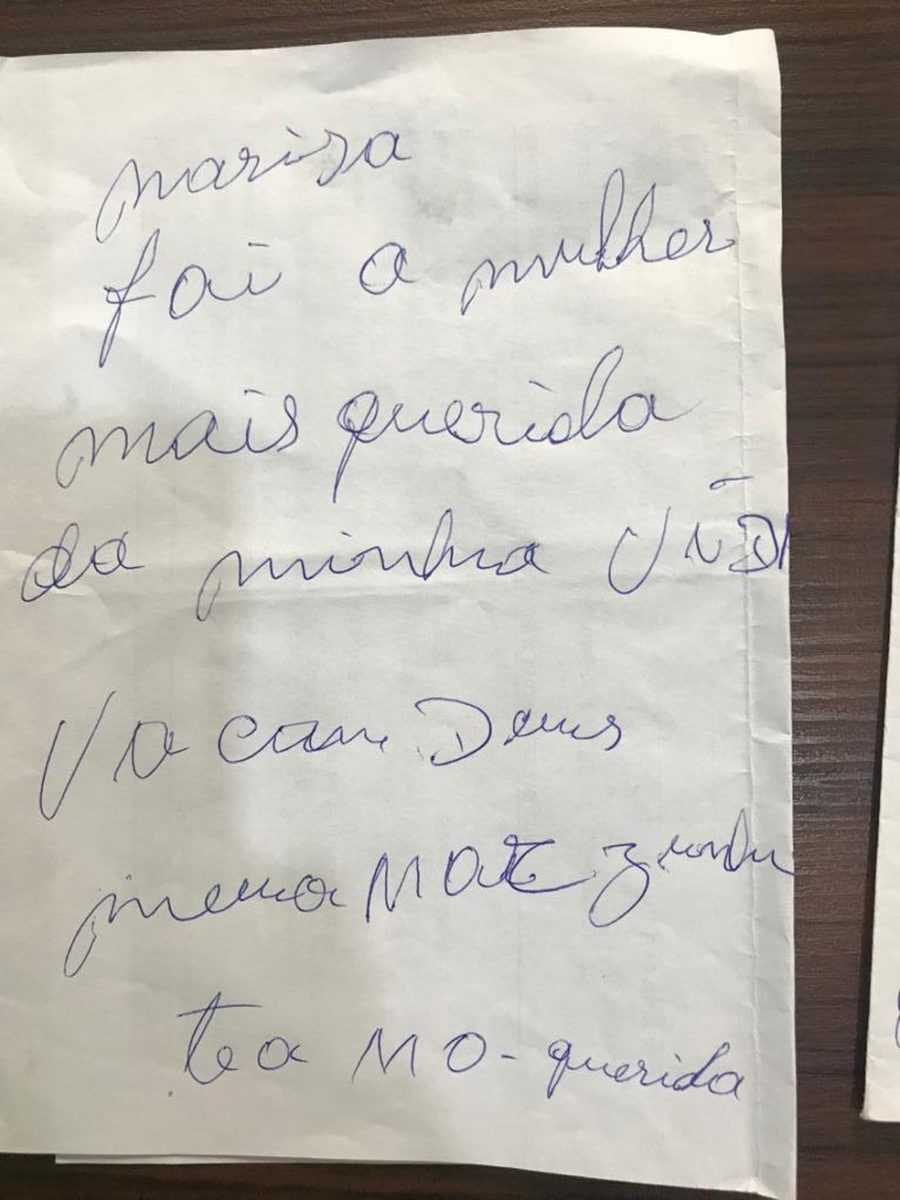 mariza
foi a mulher
mais querida
da minha VID
Va com Deus
meua MAE zinha
tea MO - querida